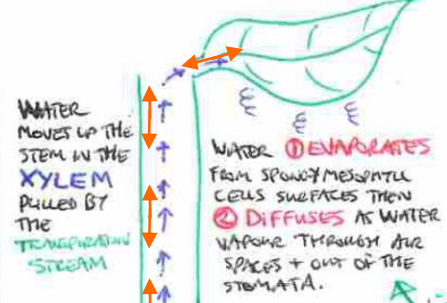 WATER
MOVES UP THE
STEM IN THE
XYLEM
PULLED BY
THE
TRANSPIRATION
STREAM
WATER ① EVAPORATES
FROM SPONGY MESOPHYLL
CELLS SURFACES THEN
② DIFFUSES AS WATER
VAPOUR THROUGH AIR
SPACES + OUT OF THE
STOMATA.